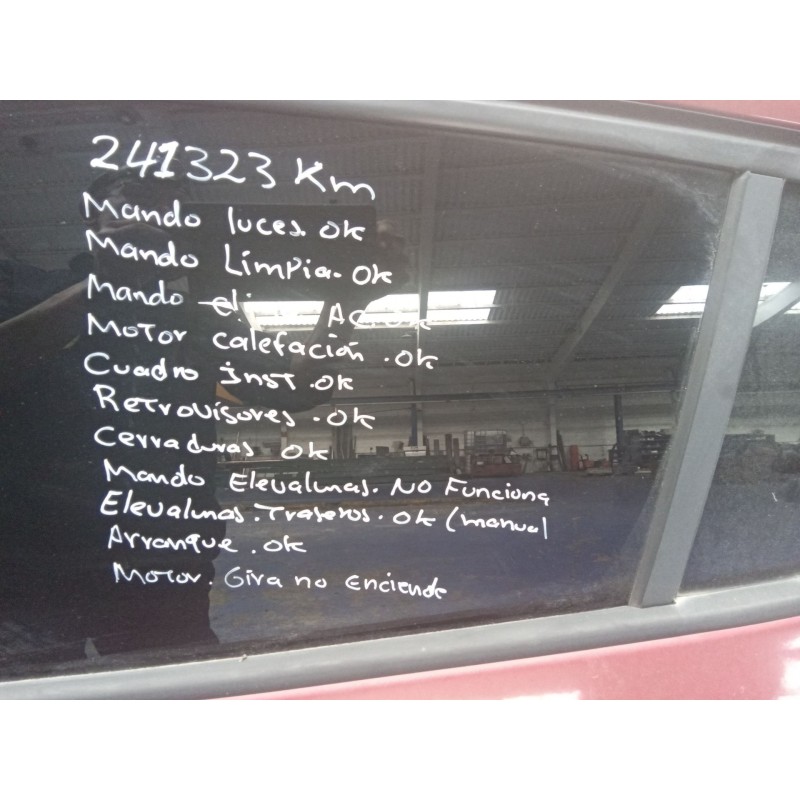 241323 Km
Mando luces. OK
Mando Limpia. OK
Mando
Motor calefación. OK
Cuadro Inst. OK
Retrovisores. OK
Cerraduras OK
Mando Elevalunas. NO Funciona
Elevalunas. Traseros. OK (manual
Arranque. OK
Motor. Gira no enciende